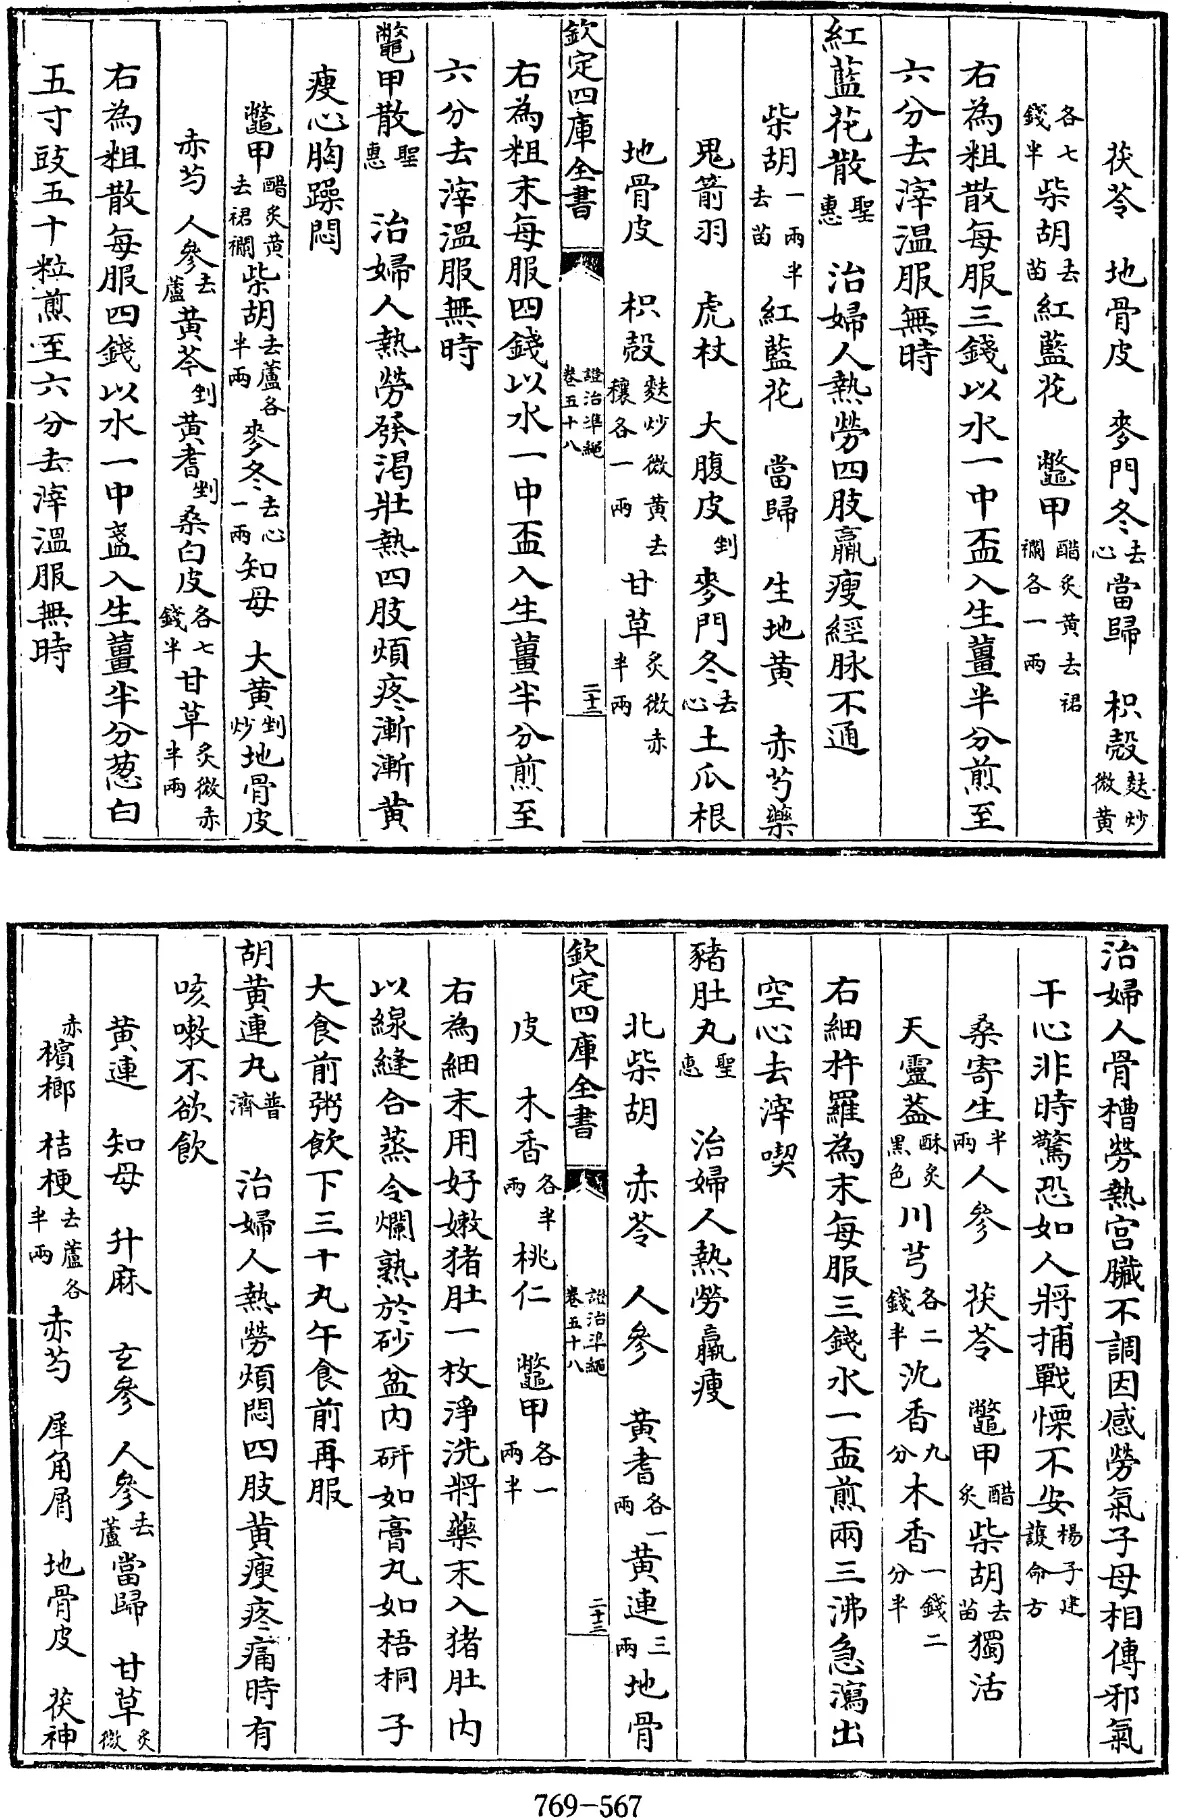 茯苓　地骨皮　麥門冬去心當歸　枳殼麩炒微黄
各七錢半柴胡去苗紅藍花　鼈甲醋炙黄去裙襴各一兩
右為粗散每服三錢以水一中盃入生薑半分煎至
六分去滓温服無時
紅藍花散聖惠　治婦人熱勞四肢羸瘦經脉不通
柴胡一兩半去苗紅藍花　當歸　生地黄　赤芍藥
鬼箭羽　虎杖　大腹皮剉麥門冬去心土瓜根
地骨皮　枳殼麩炒微黄去穰各一兩甘草炙微赤半兩
欽定四庫全書　證治準繩卷五十八　二十二
右為粗末每服四錢以水一中盃入生薑半分煎至
六分去滓溫服無時
鼈甲散聖惠　治婦人熱勞發渴壯熱四肢煩疼漸漸黄
瘦心胸躁悶
鼈甲醋炙黄去裙襴柴胡去蘆各半兩麥冬去心一兩知母　大黄剉炒地骨皮
赤芍　人參去蘆黄芩剉黄耆剉桑白皮各七錢半甘草炙微赤半兩
右為粗散每服四錢以水一中盞入生薑半分葱白
五寸豉五十粒煎至六分去滓溫服無時
治婦人骨槽勞熱宫臟不調因感勞氣子母相傳邪氣
干心非時驚恐如人將捕戰慄不安楊子建護命方
桑寄生半兩人參　茯苓　鼈甲醋炙柴胡去苗獨活
天靈葢酥炙黑色川芎各二錢半沉香九分木香一錢二分半
右細杵羅為末每服三錢水一盃煎兩三沸急瀉出
空心去滓喫
豬肚丸聖惠　治婦人熱勞羸瘦
北柴胡　赤苓　人參　黄耆各一兩黄連三兩地骨
欽定四庫全書　證治準繩卷五十八　二十三
皮　木香各半兩桃仁　鼈甲各一兩半
右為細末用好嫩猪肚一枚淨洗將藥末入猪肚内
以線縫合蒸令爛熟於砂盆内研如膏丸如梧桐子
大食前粥飲下三十丸午食前再服
胡黄連丸普濟　治婦人熱勞煩悶四肢黄瘦疼痛時有
咳嗽不欲飲
黄連　知母　升麻　玄參　人參去蘆當歸　甘草炙微
赤檳榔　桔梗去蘆各半兩赤芍　犀角屑　地骨皮　茯神
769-567